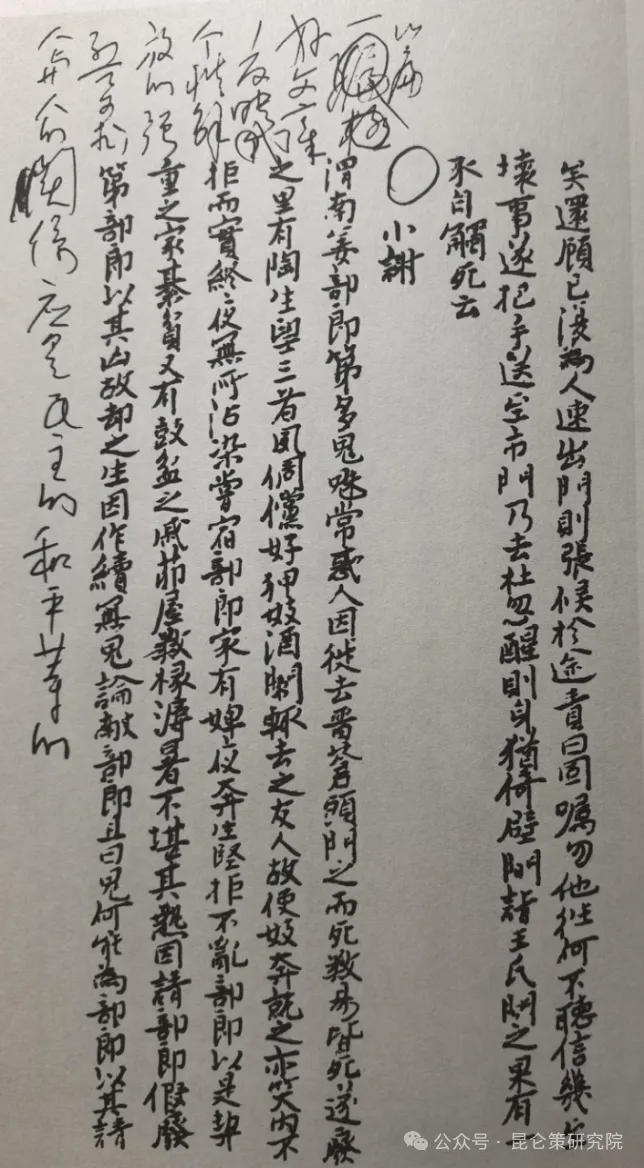 矣還顧已沒為人速出門則張候於途責曰固囑勿他往何不聽信幾乎
壞事遂把手送至市門乃去杜忽醒則身猶倚壁間詣王氏問之果有一
豕自觸死云
小謝
渭南姜部郎第多鬼魅常惑人因徙去留蒼頭門之而死數易皆死遂廢
之里有陶生望三者夙倜儻好狎妓酒闌輒去之友人故使妓奔就之亦笑內不
拒而實終夜無所沾染嘗宿部郎家有婢夜奔生堅拒不亂部郎以是契
重之家綦貧又有鼓盆之戚茆屋數椽溽暑不堪其熱因請部郎假廢
第部郎以其凶故却之生因作續無鬼論獻部郎且曰鬼何能為部郎以其請
一篇
好文章
反映了
个性解
放的强
人的關係应是民主的和平等的
公众号·昆仑策研究院